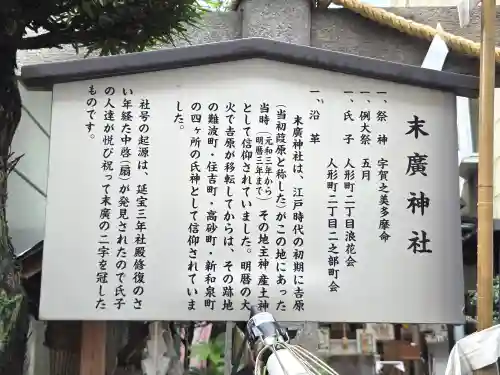 末廣神社
一、祭神　宇賀之美多摩命
一、例大祭　五月
一、氏子　人形町一丁目浪花会
人形町二丁目二之部町会
一、沿革
末廣神社は、江戸時代の初期に吉原
(当初葭原と称した)がこの地にあった
当時(元和三年から明暦三年まで)その地主神産土神
として信仰されていました。明暦の大
火で吉原が移転してからは、その跡地
の難波町・住吉町・高砂町・新和泉町
の四ヶ所の氏神として信仰されていま
した。
社号の起源は、延宝三年社殿修復のさ
い年経た中啓(扇)が発見されたので氏子
の人達が悦び祝って末廣の二字を冠した
ものです。